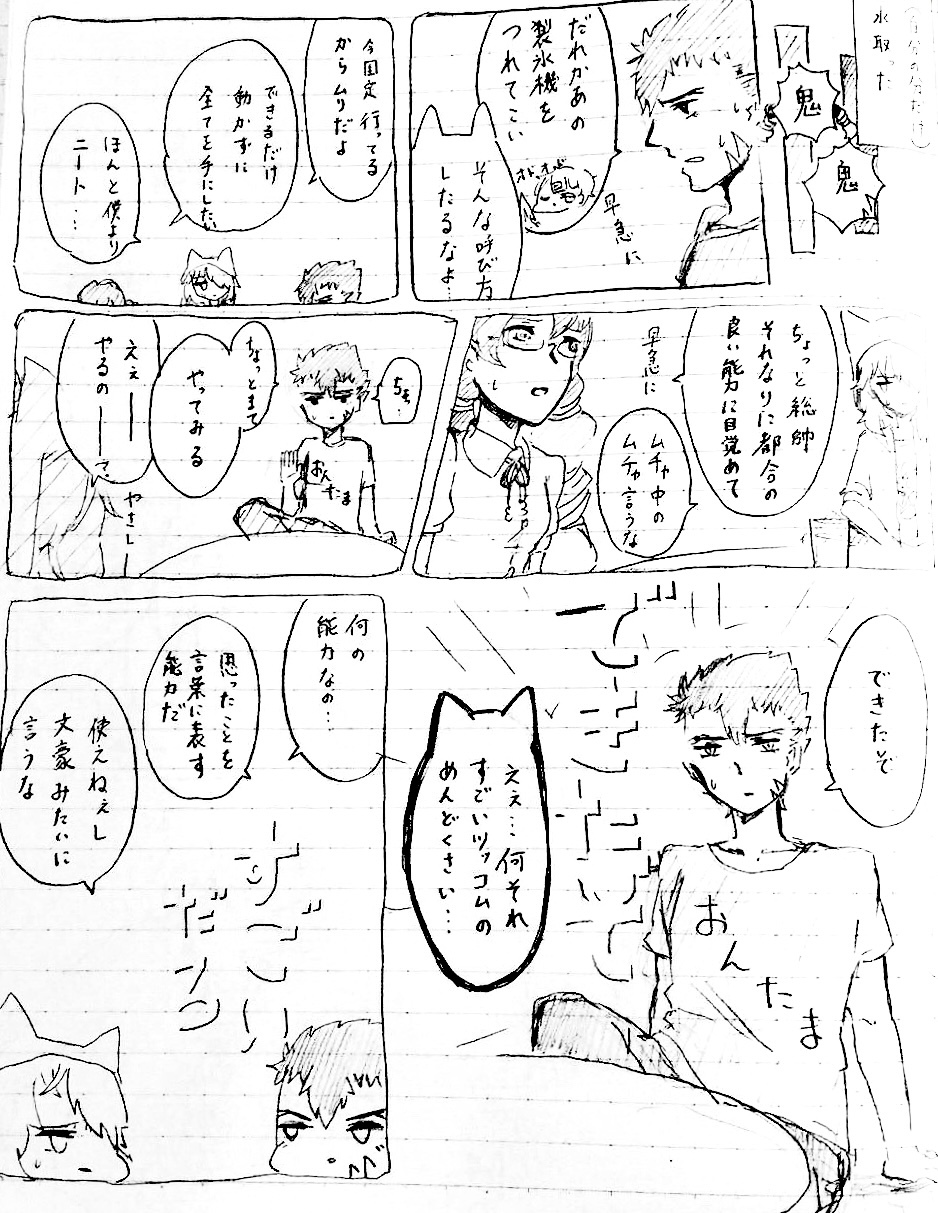 氷取った
鬼
鬼
だれかあの
製氷機を
つれてこい
早急に
そんな呼び方
したるなよ…
今国定行ってる
からムリだよ
できるだけ
動かずに
全てを手にしたい
ほんと僕より
ニート…
ちょっと総帥
それなりに都合の
良い能力に目覚めて
早急に
ムチャ中の
ムチャ言うな
ちょ…
おんたま
ちょっとまて
やってみる
ええ──
やるの──で
やさし─
できたぞ
おんたま
ええ…何それ
すごいツッコムの
めんどくさい…
何の
能力なの…
思ったことを
言葉に表す
能力だ
すごい
だろ
使えねぇし
文豪みたいに
言うな